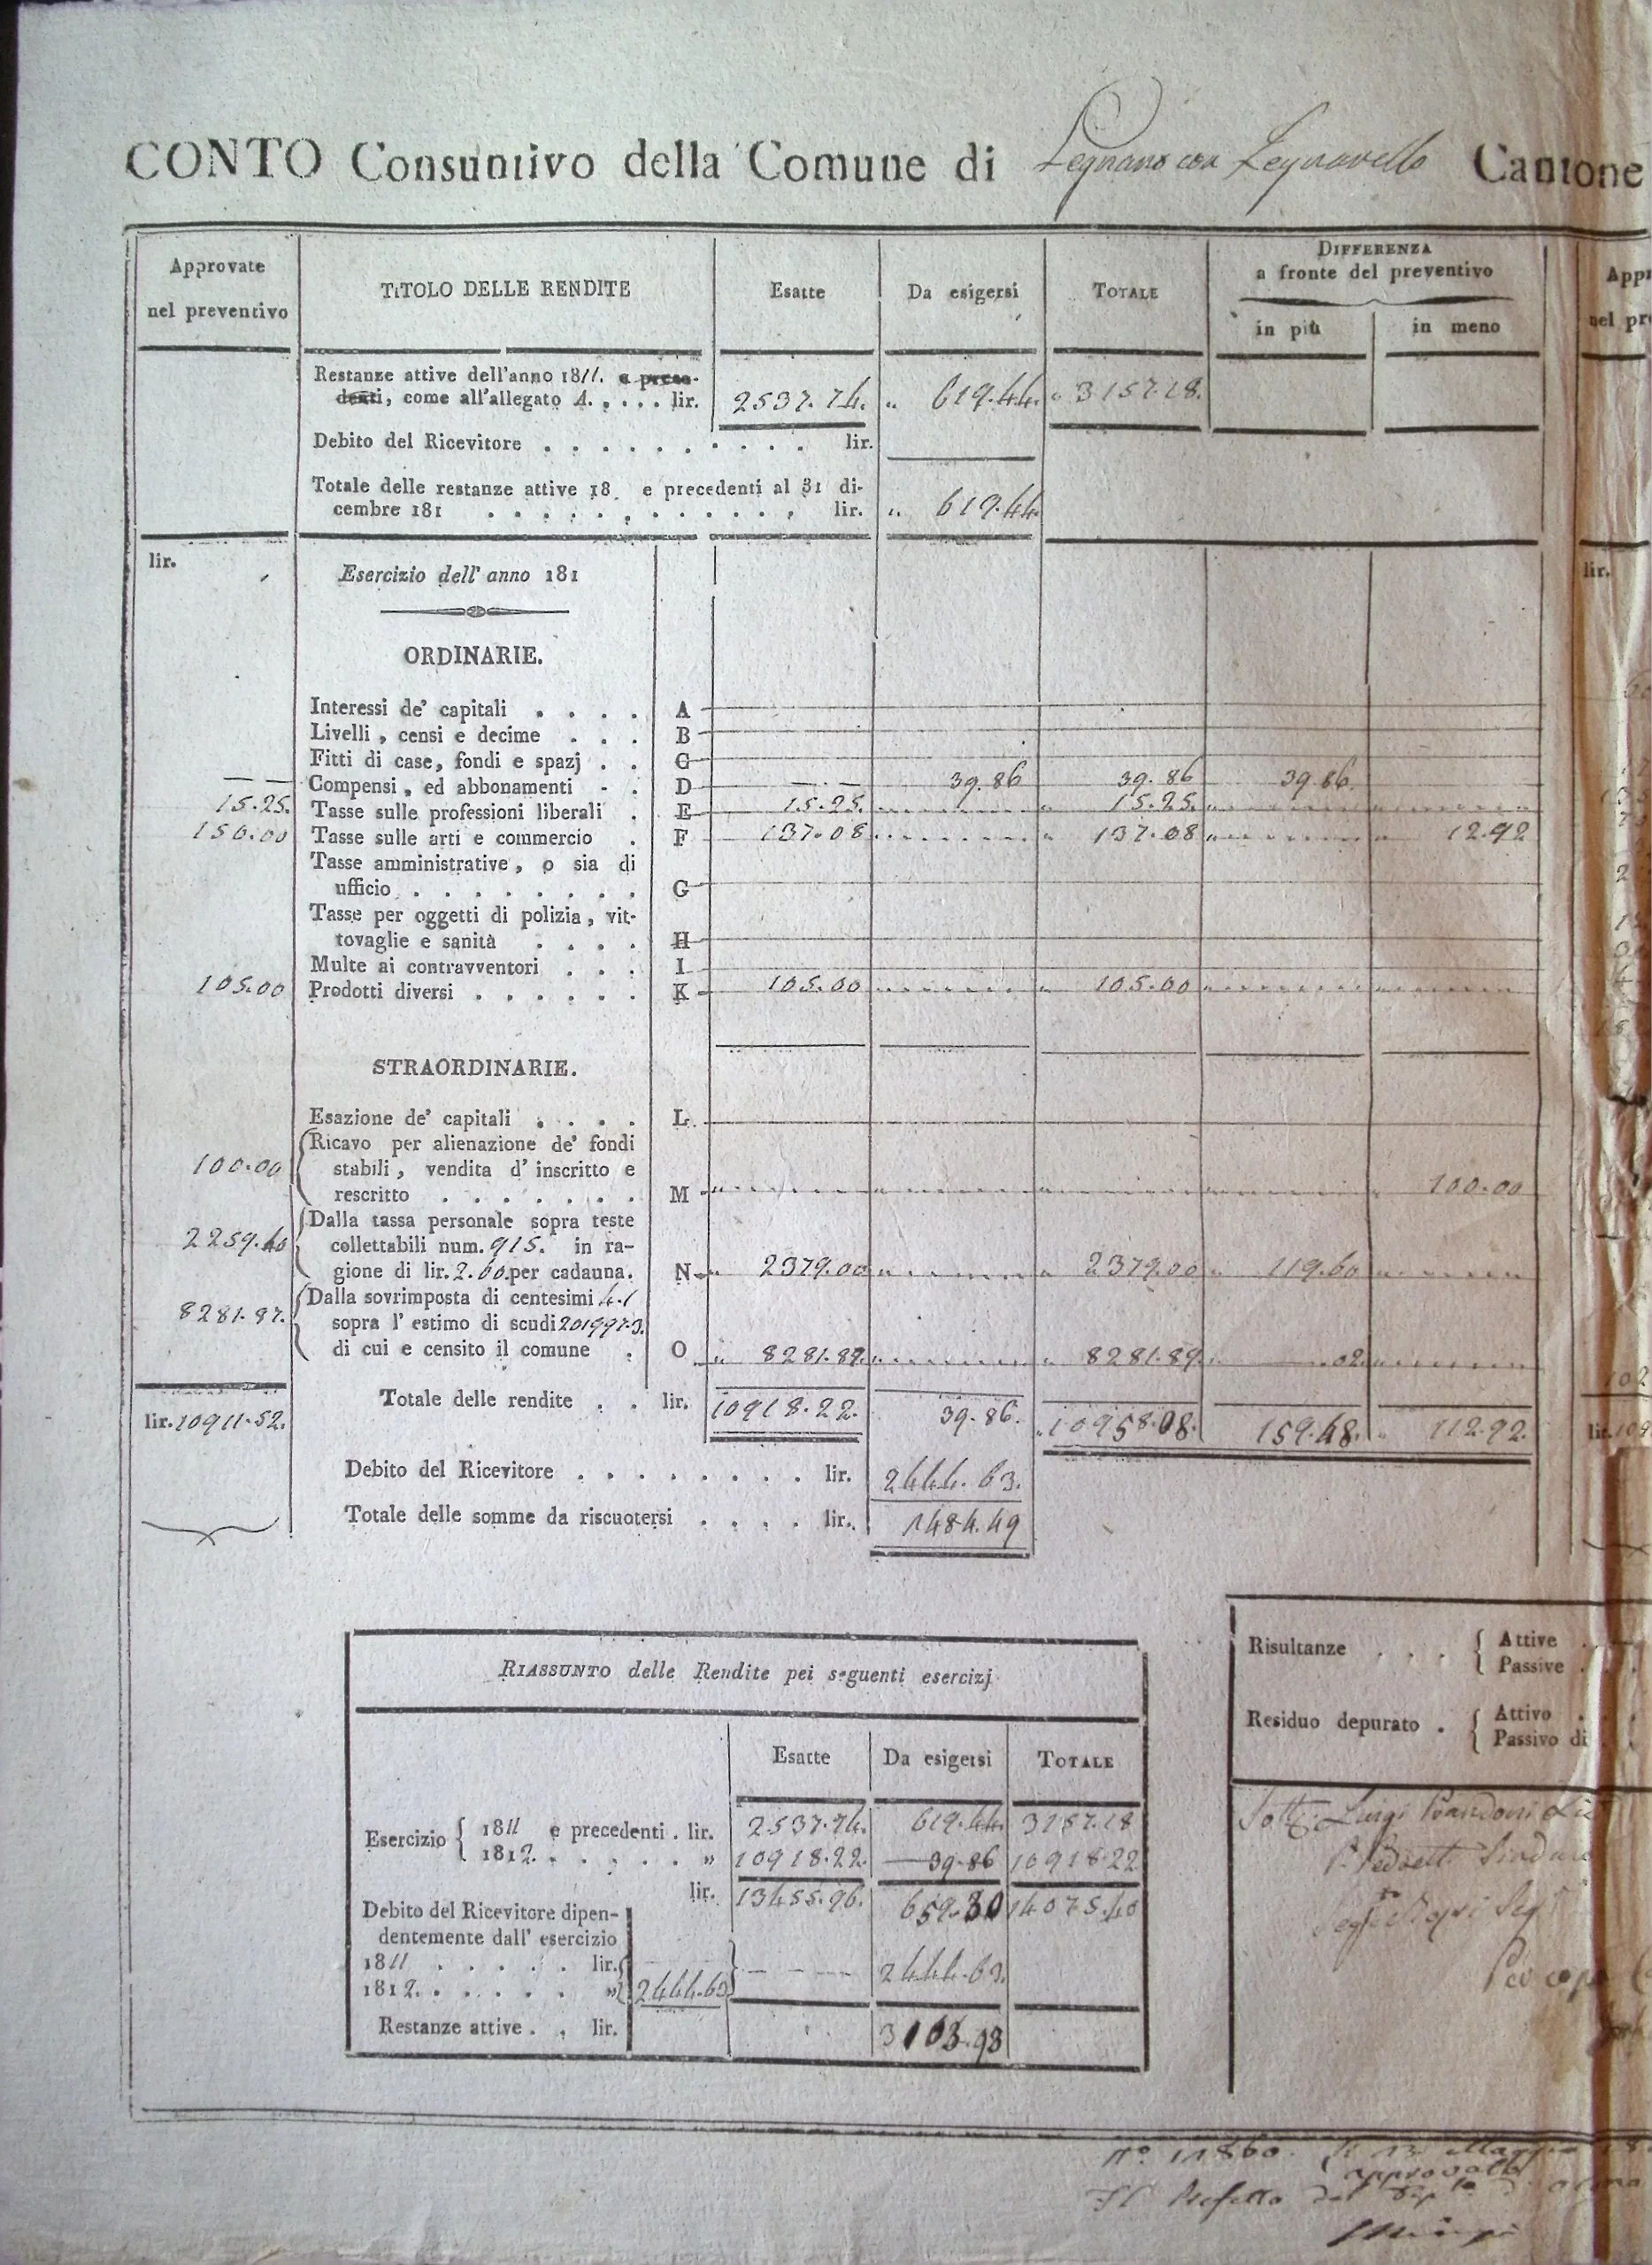 CONTO Consuntivo della Comune di Legnano con Legnanello Cantone
Approvate nel preventivo
TITOLO DELLE RENDITE
Esatte
Da esigersi
TOTALE
DIFFERENZA
a fronte del preventivo
in più
in meno
Restanze attive dell'anno 1811. e prece-
denti, come all'allegato A. . . . . lir. 2537.74. „ 619.44. „ 3157.18.
Debito del Ricevitore . . . . . . . . . . lir.
Totale delle restanze attive 18 e precedenti al 31 di-
cembre 181 . . . . . . . . . . . . lir. „ 619.44
lir.
Esercizio dell' anno 181
ORDINARIE.
Interessi de' capitali . . . . A
Livelli, censi e decime . . . B
Fitti di case, fondi e spazj . . C
— — Compensi, ed abbonamenti . . D —.— 39.86 39.86 39.86
15.25. Tasse sulle professioni liberali . E 15.25. „ 15.25.
150.00 Tasse sulle arti e commercio . F 137.08 „ 137.08 12.92
Tasse amministrative, o sia di
ufficio . . . . . . . . . G
Tasse per oggetti di polizia, vit-
tovaglie e sanità . . . . H
Multe ai contravventori . . . I
105.00 Prodotti diversi . . . . . . K 105.00 „ 105.00
STRAORDINARIE.
Esazione de' capitali . . . . L
Ricavo per alienazione de' fondi
100.00 stabili, vendita d' inscritto e
rescritto . . . . . . . M 100.00
Dalla tassa personale sopra teste
2259.40 collettabili num. 915. in ra-
gione di lir. 2.60. per cadauna. N „ 2379.00 „ 2379.00 „ 119.60
Dalla sovrimposta di centesimi 4.1
8281.87. sopra l' estimo di scudi 201997.3.
di cui e censito il comune . O „ 8281.89. „ 8281.89. .02
lir. 10911.52. Totale delle rendite . . lir. 10918.22. 39.86. 10958.08. 159.48. 112.92.
Debito del Ricevitore . . . . . . . . lir. 2444.63.
Totale delle somme da riscuotersi . . . . lir. 1484.49
RIASSUNTO delle Rendite pei seguenti esercizj
Esatte
Da esigersi
TOTALE
Esercizio { 1811 e precedenti . lir. 2537.74. 619.44. 3157.18
1812. . . . . . . „ 10918.22. 39.86 10918.22
lir. 13455.96. 659.30 14075.40
Debito del Ricevitore dipen-
dentemente dall' esercizio
1811 . . . . . lir.
1812. . . . . . „ 2444.63 — — — 2444.63.
Restanze attive . . lir. 3103.93
Risultanze . . . . { Attive .
Passive .
Residuo depurato . { Attivo .
Passivo di
Luigi Prandoni
Per copia
N.° 11860. Li 13 Maggio
approvato
Il Prefetto del